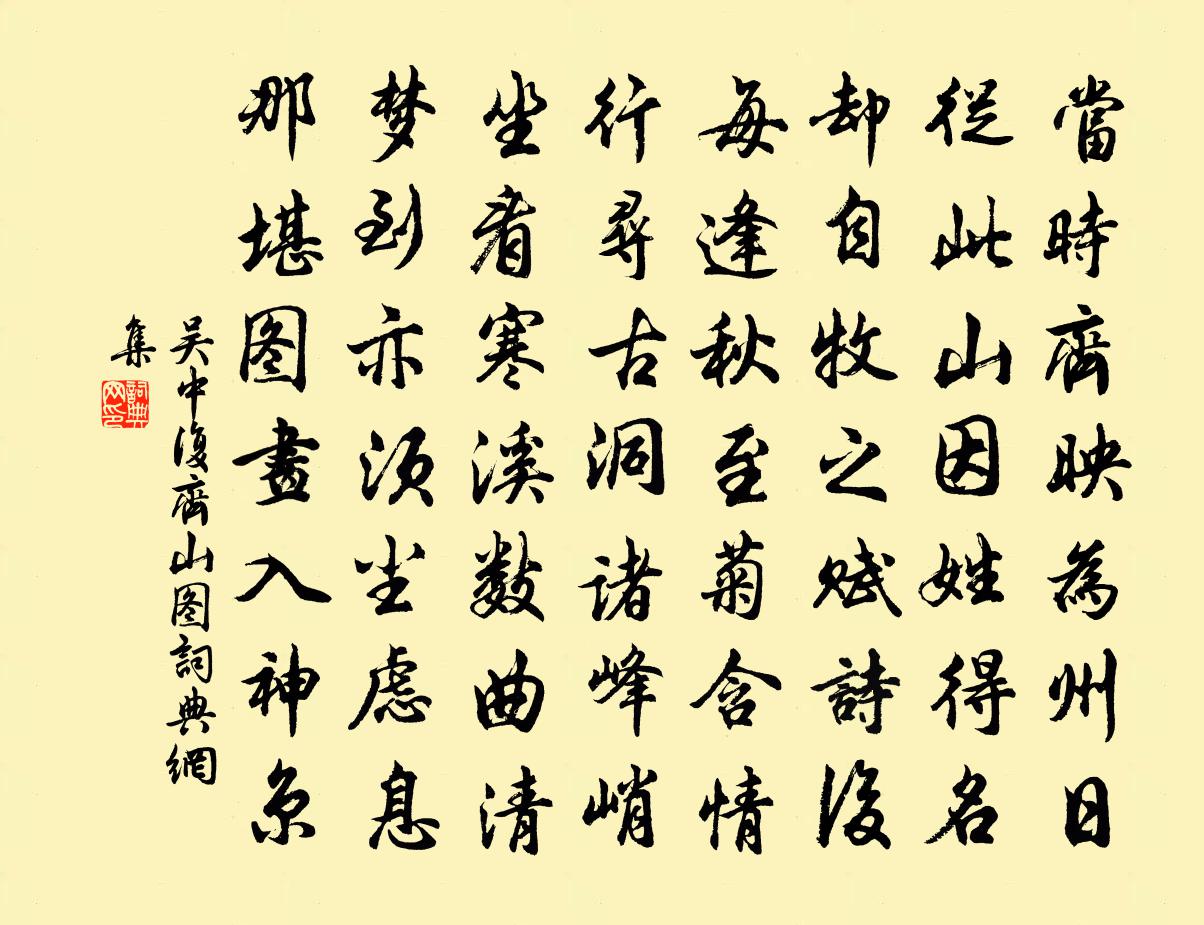 當時齊映為州日
從此山因姓得名
却自牧之賦詩後
每逢秋至菊含情
行尋古洞諸峰峭
坐看寒溪數曲清
梦到亦須尘慮息
那堪图畫入神京
吴中復齊山图詞典網
集
詞典网印